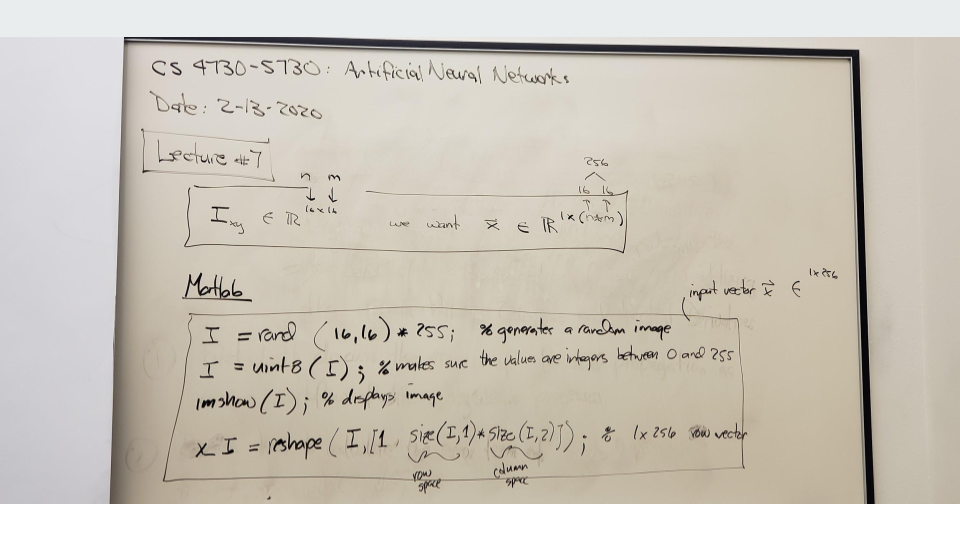 CS 4730-5730: Artificial Neural Networks
Date: 2-13-2020
Lecture #7
n m
↓ ↓
256
16 16
↑ ↑
I_xy ∈ ℝ^16×16 we want x⃗ ∈ ℝ^1×(n*m)
Matlab
input vector x⃗ ∈ ^1×256
I = rand (16,16) * 255; % generates a random image
I = uint8 (I); % makes sure the values are integers between 0 and 255
imshow (I); % displays image
x I = reshape (I,[1, size(I,1)*size(I,2)]); % 1x256 row vector
row space
column space